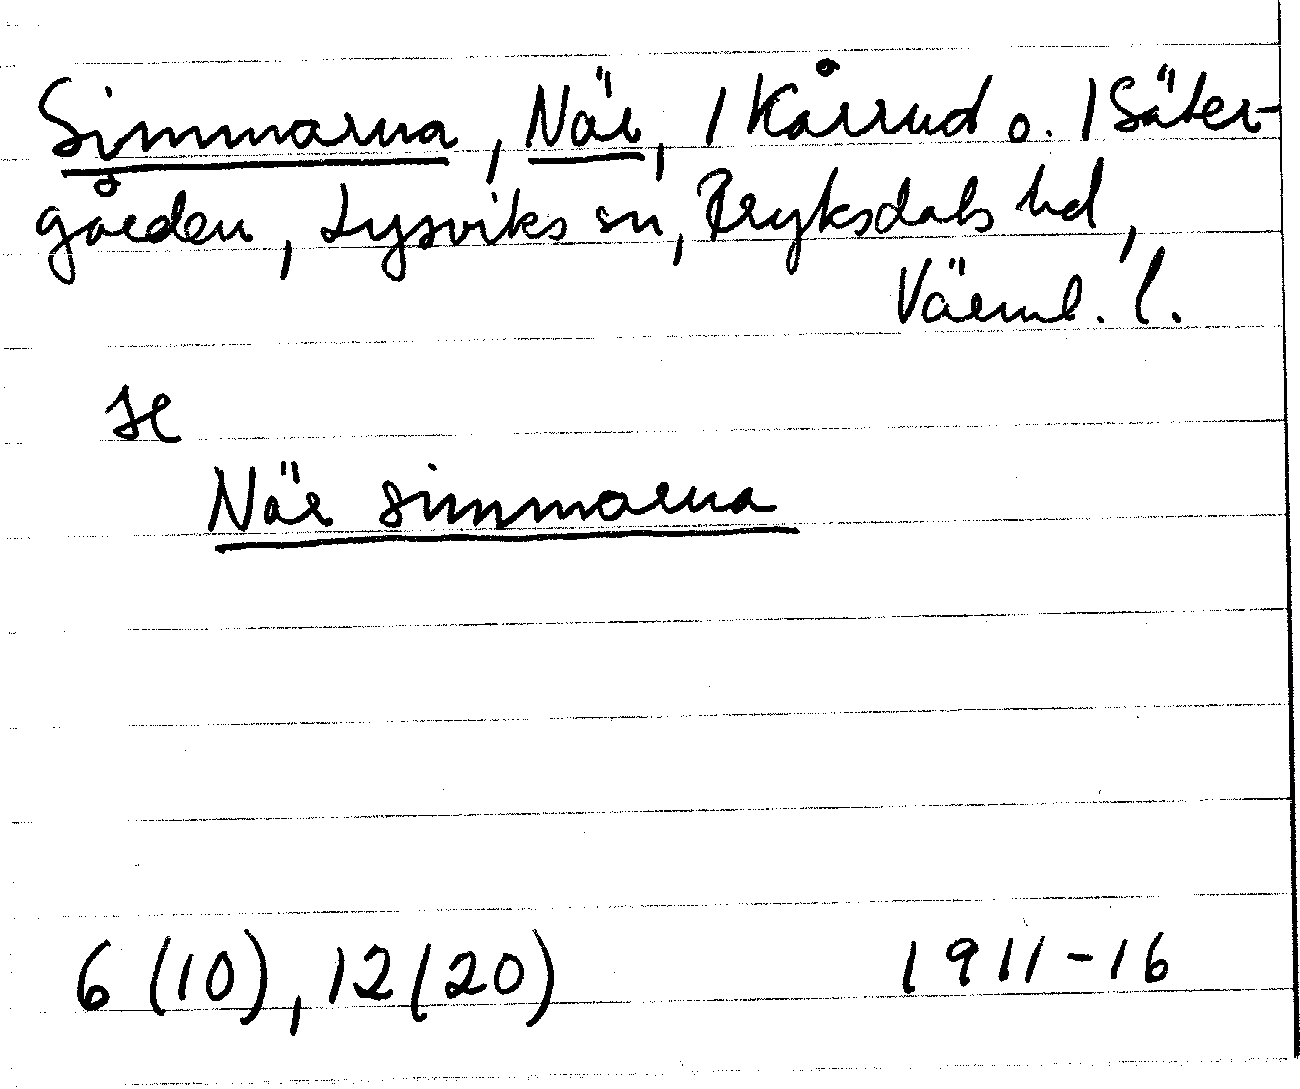 Simmarna, När, / Kårrud o. / Säter-
gården, Lysviks sn, Fryksdals hd,
Värml. l.
se
När simmarna
6 (10), 12 (20) 1911-16